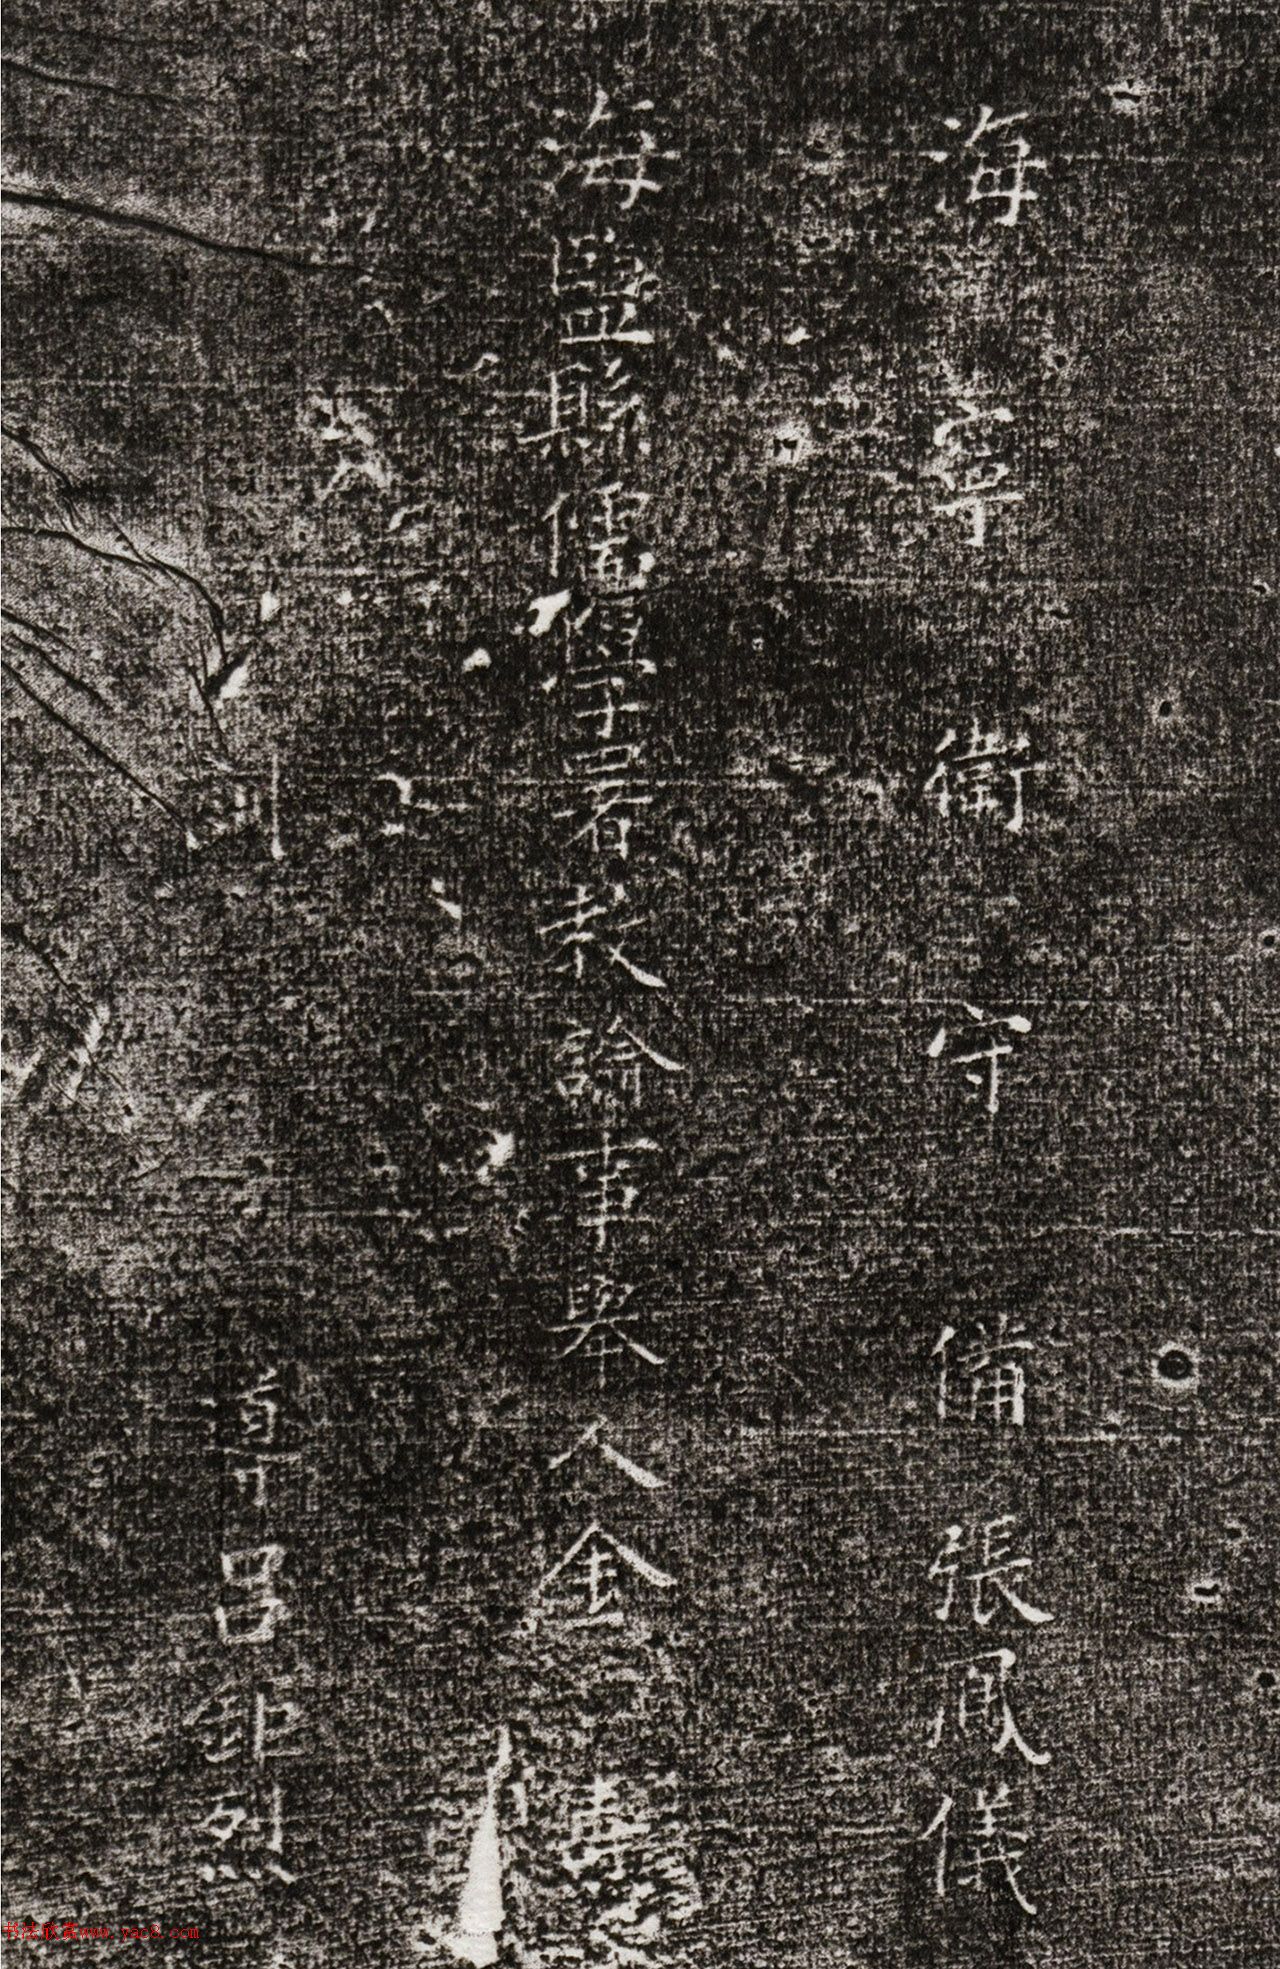 海寧衛守備張鳳儀
海鹽縣儒學署教諭事舉人金
訓導呂鉅烈
书法欣赏www.yac8.com